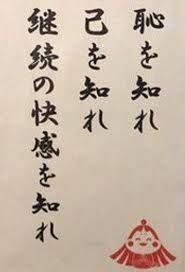 恥を知れ
己を知れ
継続の快感を知れ